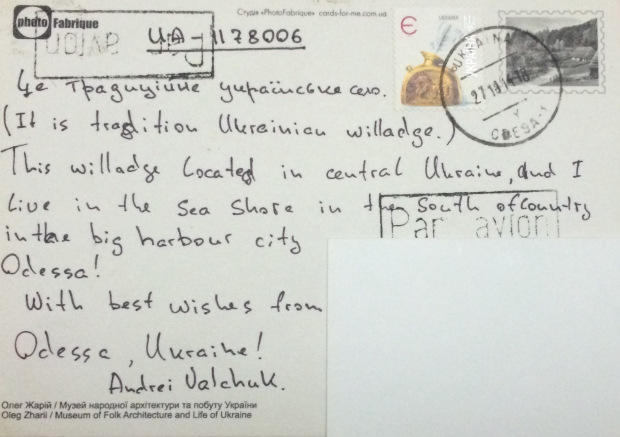 photo Fabrique
Студія «PhotoFabrique» cards-for-me.com.ua
UA-1178006
УКРАЇНА UKRAINA
27 10 14-18
ODESA-1
Це традиційне українське село.
(It is tradition Ukrainian willadge.)
This willadge Located in central Ukraine, and I
Live in the Sea Shore in the South of Country
Par avion
in the big harbour city
Odessa!
With best wishes from
Odessa, Ukraine!
Andrei Valchuk.
Олег Жарій / Музей народної архітектури та побуту України
Oleg Zharii / Museum of Folk Architecture and Life of Ukraine